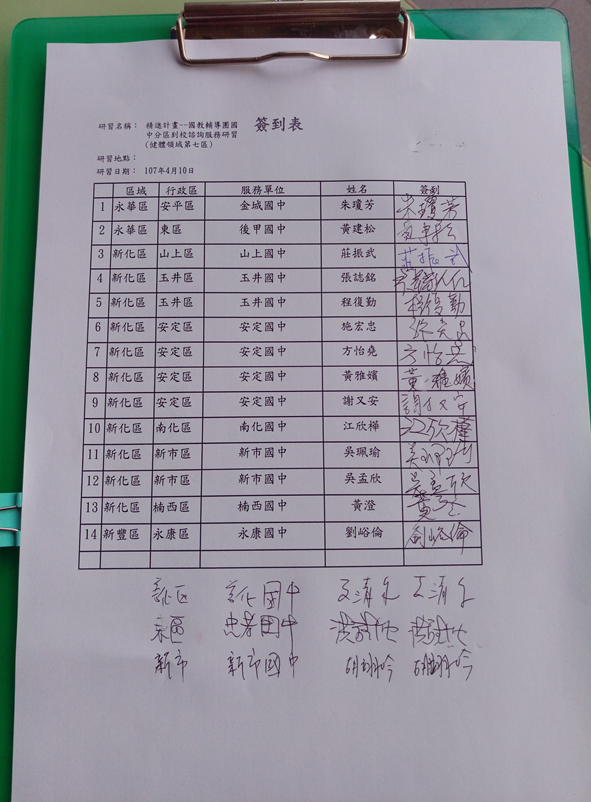 簽到表
研習名稱： 精進計畫--國教輔導團國
中分區到校諮詢服務研習
(健體領域第七區)
研習地點：
研習日期： 107年4月10日
區域 行政區 服務單位 姓名 簽到
1 永華區 安平區 金城國中 朱瓊芳 朱瓊芳
2 永華區 東區 後甲國中 黃建松
3 新化區 山上區 山上國中 莊振武 莊振武
4 新化區 玉井區 玉井國中 張誌銘
5 新化區 玉井區 玉井國中 程復勤 程復勤
6 新化區 安定區 安定國中 施宏忠
7 新化區 安定區 安定國中 方怡堯 方怡堯
8 新化區 安定區 安定國中 黃雅嬪 黃雅嬪
9 新化區 安定區 安定國中 謝又安 謝又安
10 新化區 南化區 南化國中 江欣樺 江欣樺
11 新化區 新市區 新市國中 吳珮瑜 吳珮瑜
12 新化區 新市區 新市國中 吳孟欣 吳孟欣
13 新化區 楠西區 楠西國中 黃澄
14 新豐區 永康區 永康國中 劉峪倫 劉峪倫
國中
東區 忠孝國中
新市 新市國中